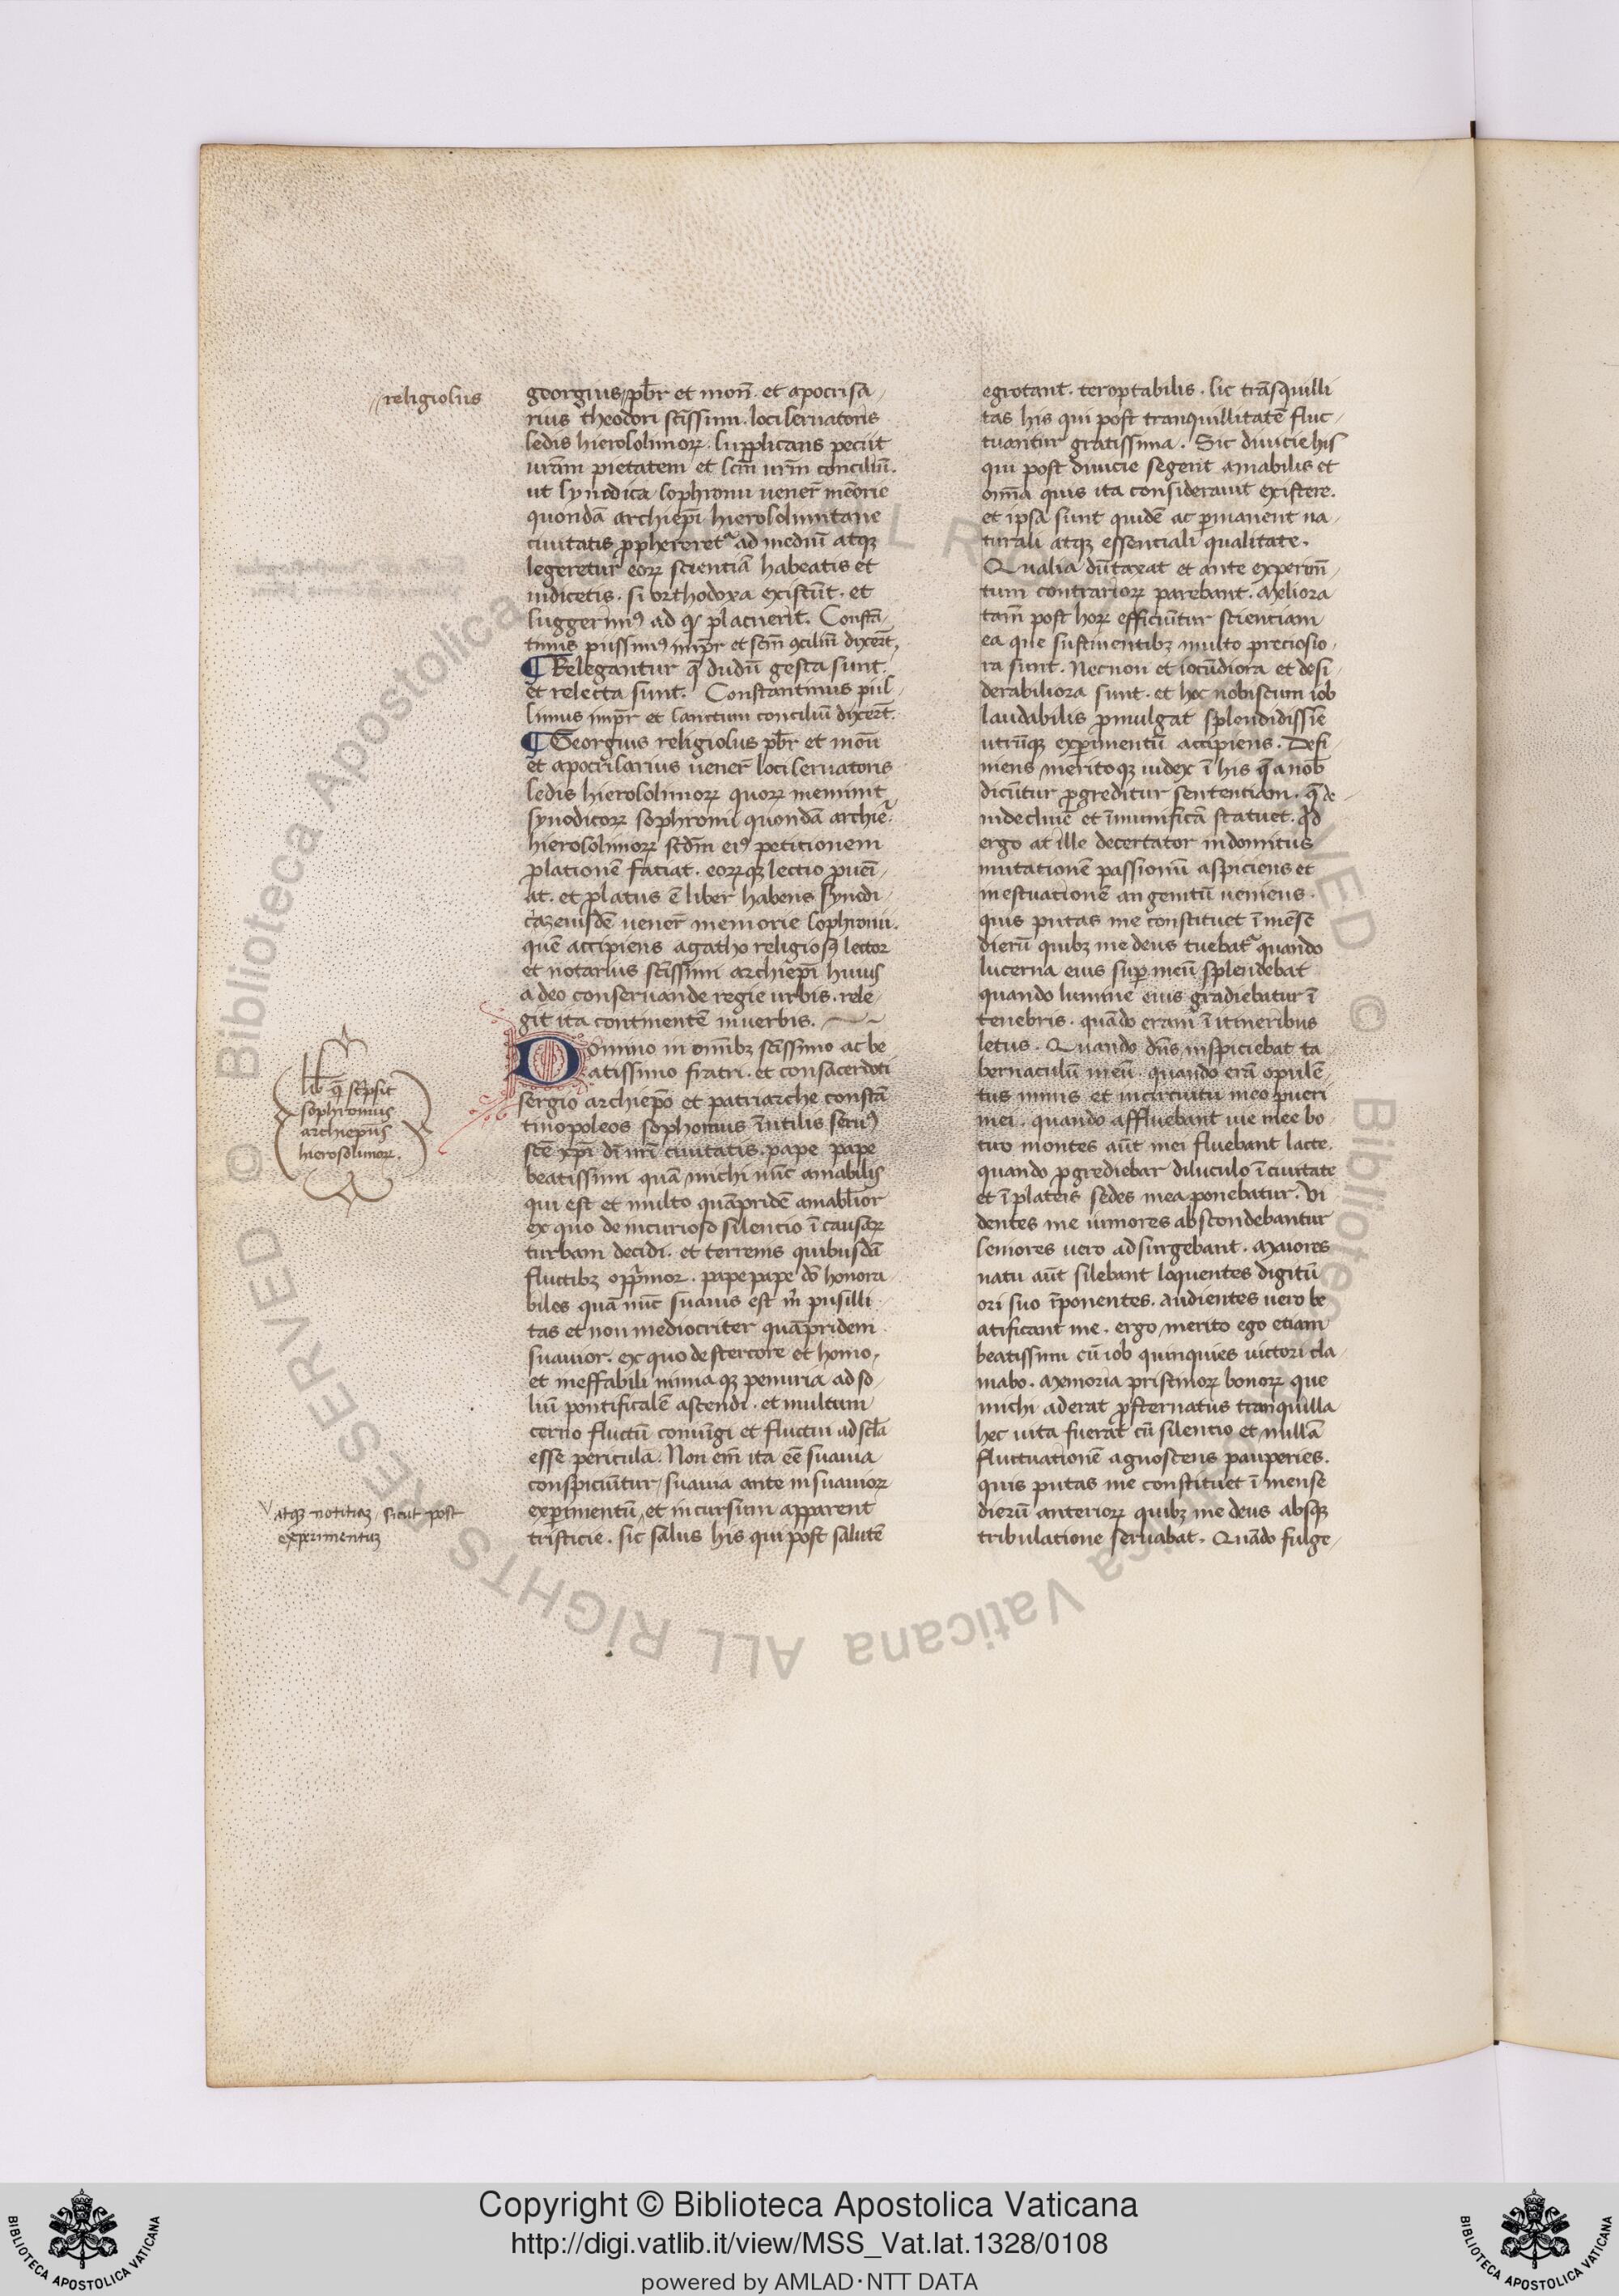 religiosus
georgius pbr̄ et mon̄. et apocrisa
rius theodori sc̄issimi. loci seruatoris
sedis hierosolimoꝝ. supplicans peciit
ur̄am pietatem et sc̄m ur̄m conciliū.
ut synodica sophronii uener̄ meōrie
quondā archiepī hierosolimitane
ciuitatis ꝓphereret ad mediū atqꝫ
legeretur eoꝝ scientiā habeatis et
iudicetis. si orthodoxa existūt. et
placuerit. Constā
tinus piissimꝰ imp̄r et sc̄m ꝯciliū dixer̄t,
Relegantur q̄ dudū gesta sunt
et relecta sunt. Constantinus piis
simus imp̄r et sanctum conciliū dixer̄t.
Georgius religiosus pbr̄ et mon̄
et apocrisarius uener̄ loci seruatoris
sedis hierosolimoꝝ quoꝝ meminit
synodicoꝝ sophronii quondā archiē.
hierosolimoꝝ scd̄m eiꝰ peticionem
ꝓlationē faciat. eoꝝqꝫ lectio ꝓueī
at. et ꝓlatus ē liber habens synodi
caꝫ eiusdē uener̄ memorie sophronii.
quē accipiens agatho religiosꝰ lector
et notarius sc̄issimi archiepī huius
a deo conseruande regie urbis. rele
git ita continentē in uerbis.
Domino in omībꝫ sc̄issimo ac be
atissimo fratri. et consacerdoti
sergio archiepō et patriarche constā
tinopoleos sophonius īutilis seruꝰ
sc̄e xp̄i dī nr̄i ciuitatis. pape pape
beatissimi quā michi nūc amabilis
qui est et multo quāpridē amabl̄ior
ex quo de incurioso silencio ī causaꝝ
turbam decidi. et terrenis quibusdā
fluctibꝫ opp̄mor. pape pape dō honora
biles quā nūc suauis est m̄ pusilli
tas et non mediocriter quāpridem
suauior. ex quo de stercore et homo,
et ineffabili nimiaqꝫ penuria ad so
liū pontificalē ascendi. et multum
cerno fluctū coniūgi et fluctui ad scl̄a
esse pericula. Non em̄ ita eē suauia
conspiciūtur, suauia ante insuauioꝝ
exꝑimentū, et incursum apparent
tristicie. sic salus his qui post salutē
lib q̄ sc̄psit
sophronius
archiepūs
hierosolimoꝝ.
atqꝫ notitiaꝫ, sicut post
experimentuꝫ
egrotant. ter optabilis. sic trāsquilli
tas his qui post tranquillitatē fluc
tuantur gratissima. Sic diuicie his
qui post diuicie segent amabilis et
omīa quis ita considerauit existere.
et ipsa sunt quidē ac ꝑmanent na
turali atqꝫ essenciali qualitate.
Qualia dūtaxat et ante experim̄
tum contrarioꝝ parebant. Meliora
tam̄ post hoꝝ efficiūtur scienciam
ea que sustinentibꝫ multo preciosio
ra sunt. Necnon et iocūdiora et desi
derabiliora sunt. et hoc nobiscum iob
laudabilis ꝓmulgat splendidissīe
utrūqꝫ exꝑimentū accipiens. Defi
niens meritoqꝫ iudex ī his q̄ a nob̄
dicūtur ꝓgreditur sentenciam. q̄ de
indecliuē et īmunificā statuet. qd̄
ergo at ille decertator indomitus
mutationē passionū aspiciens et
inestuationē an genitū ueniens.
quis putas me constituet ī mēse
dierū quibꝫ me deus tuebat quando
lucerna eius suꝑ meū splendebat
quando lumine eius gradiebatur ī
tenebris. quādo eram ī itineribus
letus. Quando dn̄s inspiciebat ta
bernaculū meū. quando erā opulē
tus nimis et in circuitu meo pueri
mei. quando affluebant uie mee bo
tiro montes aūt mei fluebant lacte.
quando ꝓgrediebar diluculo ī ciuitate
et ī plateis sedes mea ponebatur. Vi
dentes me iuniores abscondebantur
seniores uero adsurgebant. Maiores
natu aūt silebant loquentes digitū
ori suo īponentes. audientes uero be
atificant me. ergo merito ego etiam
beatissimi cū iob quinquies uictori cla
mabo. Memoria pristinoꝝ bonoꝝ que
michi aderat ꝓsternatus tranquilla
hec uita fuerat cū silencio et nullā
fluctuationē agnoscens pauperies.
quis putas me constituet ī mense
dierū anterioꝝ quibꝫ me deus absqꝫ
tribulatione seruabat. Quādo fulge
Copyright © Biblioteca Apostolica Vaticana
http://digi.vatlib.it/view/MSS_Vat.lat.1328/0108
powered by AMLAD·NTT DATA
BIBLIOTECA APOSTOLICA VATICANA
BIBLIOTECA APOSTOLICA VATICANA